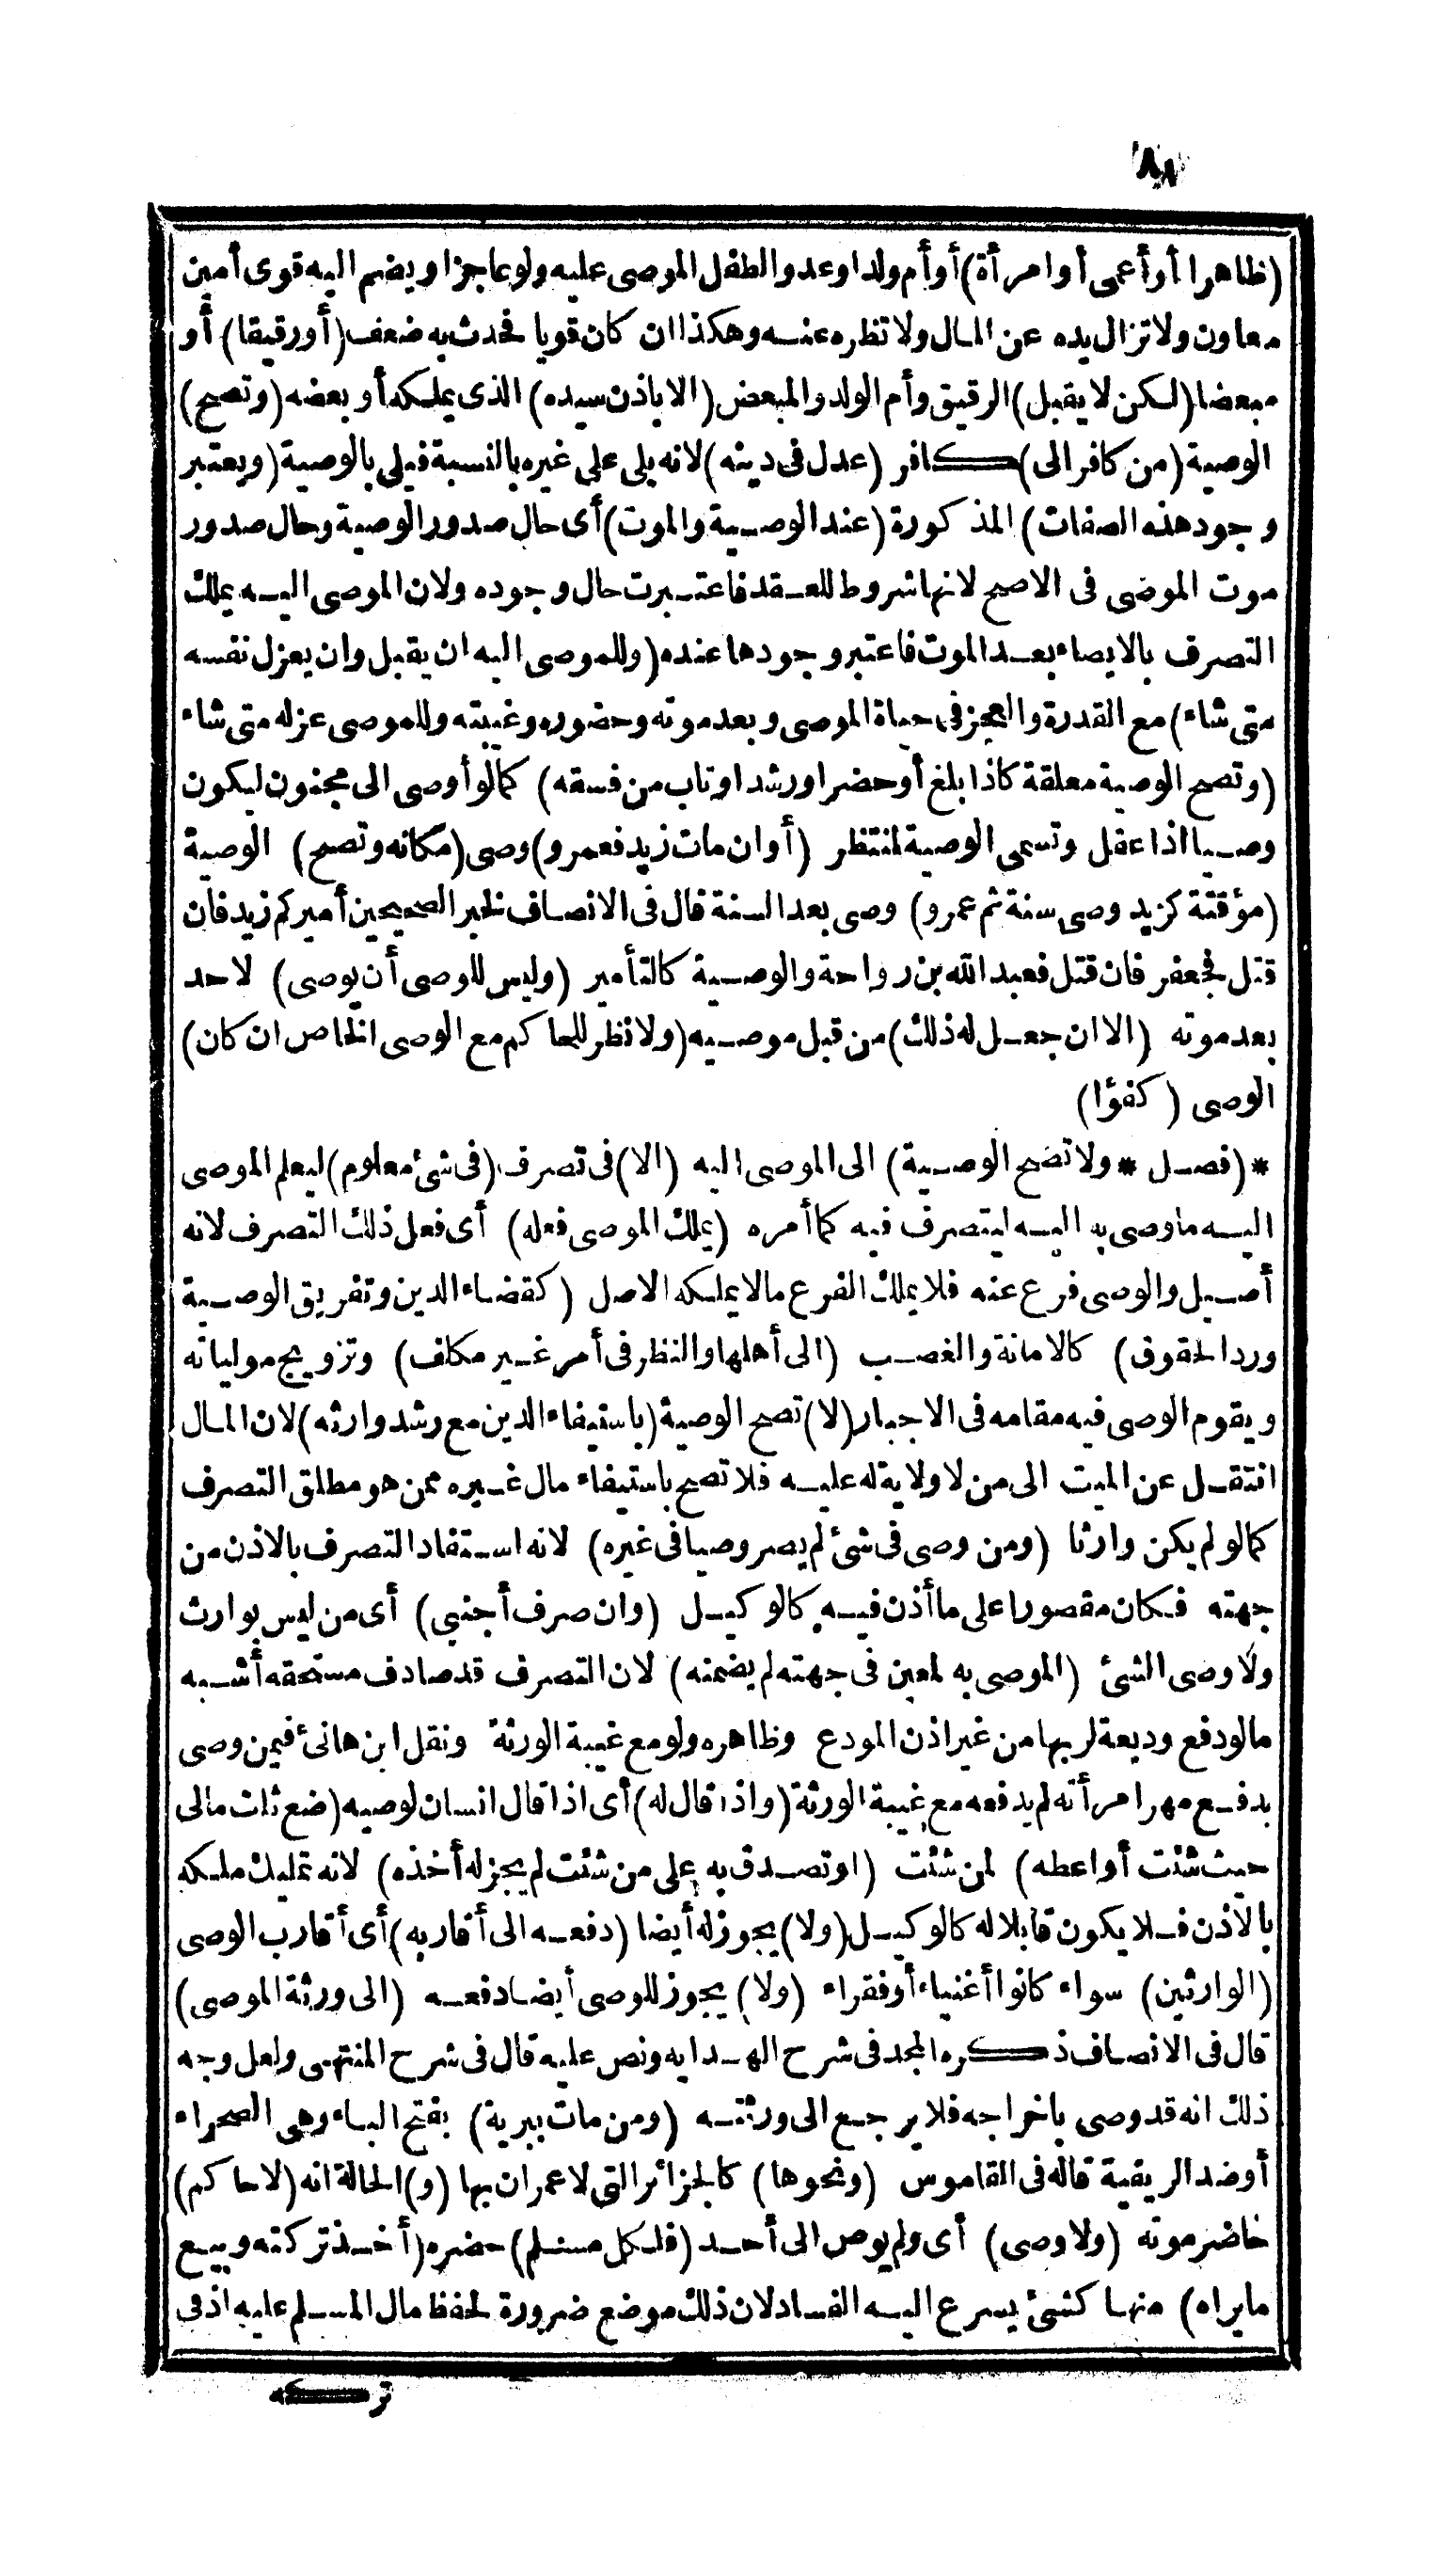 ٨٨
(ظاهرا أو أعمى أو امرأة) أو أم ولد او عدو الطفل الموصى عليه ولو عاجزا ويضم اليه قوى أمين
معاون ولا تزال يده عن المال ولا نظره عنه وهكذا ان كان قويا فحدث به ضعف (أو رقيقا) أو
مبعضا (لكن لا يقبل) الرقيق وأم الولد والمبعض (الا باذن سيده) الذى يملكه أو بعضه (وتصح)
الوصية (من كافر الى) كافر (عدل فى دينه) لانه يلى على غيره بالنسبة فيلى بالوصية (ويعتبر
وجود هذه الصفات) المذكورة (عند الوصية والموت) أى حال صدور الوصية وحال صدور
موت الموضى فى الاصح لانها شروط للعقد فاعتبرت حال وجوده ولان الموصى اليه يملك
التصرف بالايصاء بعد الموت فاعتبر وجودها عنده (وللموصى اليه ان يقبل وان يعزل نفسه
متى شاء) مع القدرة والعجز فى حياة الموصى وبعد موته وحضوره وغيبته وللموصى عزله متى شاء
(وتصح الوصية معلقة كاذا بلغ أو حضر اورشد اوتاب من فسقه) كما لو أوصى الى مجنون ليكون
وصيا اذا عقل وتسمى الوصية لمنتظر (أو ان مات زيد فعمرو) وصى (مكانه وتصح) الوصية
(مؤقتة كزيد وصى سنة ثم عمرو) وصى بعد السنة قال فى الانصاف لخبر الصحيحين أميركم زيد فان
قتل فجعفر فان قتل فعبد الله بن رواحة والوصية كالتأمير (وليس للوصى أن يوصى) لاحد
بعد موته (الا ان جعل له ذلك) من قبل موصيه (ولا نظر للحاكم مع الوصى الخاص ان كان)
الوصى (كفؤا)
* (فصل * ولا تصح الوصية) الى الموصى اليه (الا) فى تصرف (فى شئ معلوم) ليعلم الموصى
اليه ما وصى به اليه ليتصرف فيه كما أمره (يملك الموصى فعله) أى فعل ذلك التصرف لانه
أصيل والوصى فرع عنه فلا يملك الفرع مالا يملكه الاصل (كقضاء الدين وتفريق الوصية
ورد الحقوق) كالامانة والغصب (الى أهلها والنظر فى أمر غير مكلف) وتزويج مولياته
ويقوم الوصى فيه مقامه فى الاجبار (لا) تصح الوصية (باستيفاء الدين مع رشد وارثه) لان المال
انتقل عن الميت الى من لا ولاية له عليه فلا تصح باستيفاء مال غيره ممن هو مطلق التصرف
كما لو لم يكن وارثا (ومن وصى فى شئ لم يصر وصيا فى غيره) لانه استفاد التصرف بالاذن من
جهته فكان مقصورا على ما أذن فيه كالوكيل (وان صرف أجنبي) أى من ليس بوارث
ولا وصى الشئ (الموصى به لمعين فى جهته لم يضمنه) لان التصرف قد صادف مستحقه أشبه
مالو دفع وديعة لربها من غير اذن المودع وظاهره ولو مع غيبة الورثة ونقل ابن هانئ فيمن وصى
بدفع مهر امرأته لم يدفعه مع غيبة الورثة (واذا قال له) أى اذا قال انسان لوصيه (ضع ثلث مالى
حيث شئت أو اعطه) لمن شئت (او تصدق به على من شئت لم يجز له أخذه) لانه تمليك ملكه
بالاذن فلا يكون قابلا له كالوكيل (ولا) يجوز له أيضا (دفعه الى أقاربه) أى أقارب الوصى
(الوارثين) سواء كانوا أغنياء أو فقراء (ولا) يجوز للوصى أيضا دفعه (الى ورثة الموصى)
قال فى الانصاف ذكره المجد فى شرح الهدايه ونص عليه قال فى شرح المنتهى ولعل وجه
ذلك انه قد وصى باخراجه فلا يرجع الى ورثته (ومن مات ببرية) بفتح الباء وهى الصحراء
أو ضد الريفية قاله فى القاموس (ونحوها) كالجزائر التى لا عمران بها (و) الحالة انه (لا حاكم)
حاضر موته (ولا وصى) أى ولم يوص الى أحد (فلكل مسلم) حضره (أخذ تركته وبيع
ما يراه) منها كشئ يسرع اليه الفساد لان ذلك موضع ضرورة لحفظ مال المسلم عليه اذ فى
تركه